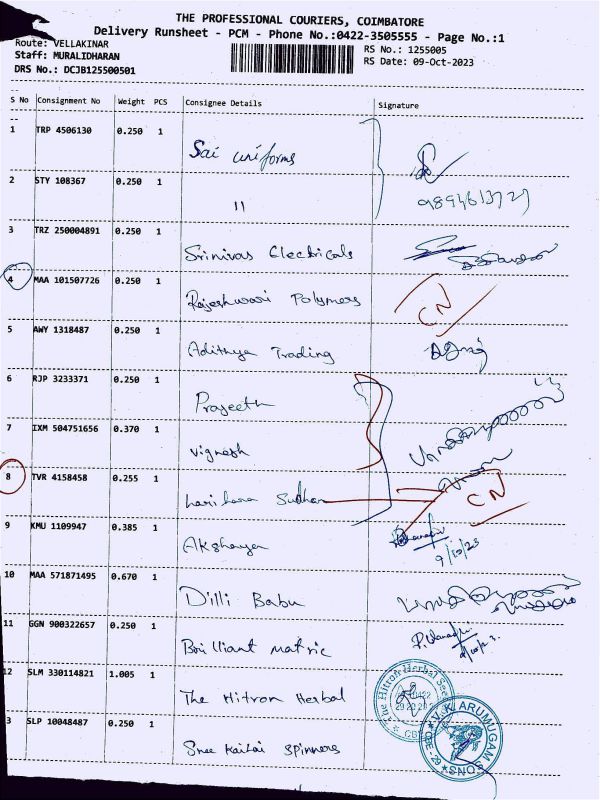 THE PROFESSIONAL COURIERS, COIMBATORE
Delivery Runsheet - PCM - Phone No.:0422-3505555 - Page No.:1
Route: VELLAKINAR
RS No.: 1255005
Staff: MURALIDHARAN
RS Date: 09-Oct-2023
DRS No.: DCJB125500501
S No Consignment No Weight PCS Consignee Details Signature
1 TRP 4506130 0.250 1
Sai uniforms
2 STY 108367 0.250 1
11
3 TRZ 250004891 0.250 1
Srinivas Electricals
4 MAA 101507726 0.250 1
Rajeshwari Polymers CN
5 AWY 1318487 0.250 1
Adithya Trading
6 RJP 3233371 0.250 1
Prajeeth
7 IXM 504751656 0.370 1
Vignesh
8 TVR 4158458 0.255 1
Hari hara Sudhan CN
9 KMU 1109947 0.385 1
Akshaya 9/10/23
10 MAA 571871495 0.670 1
Dilli Babu
11 GGN 900322657 0.250 1
Brilliant matric
12 SLM 330114821 1.005 1
The Hitron Herbal
3 SLP 10048487 0.250 1
Sree Kailai Spinners
V.K. ARUMUGAM SONS